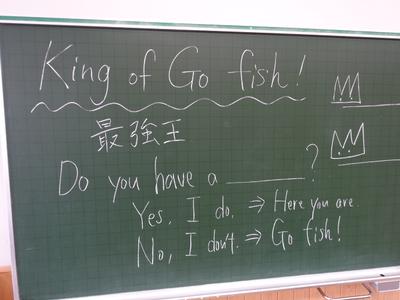 King of Go fish!
最強王
Do you have a ______?
Yes, I do. ⇒ Here you are.
No, I don't. ⇒ Go fish!